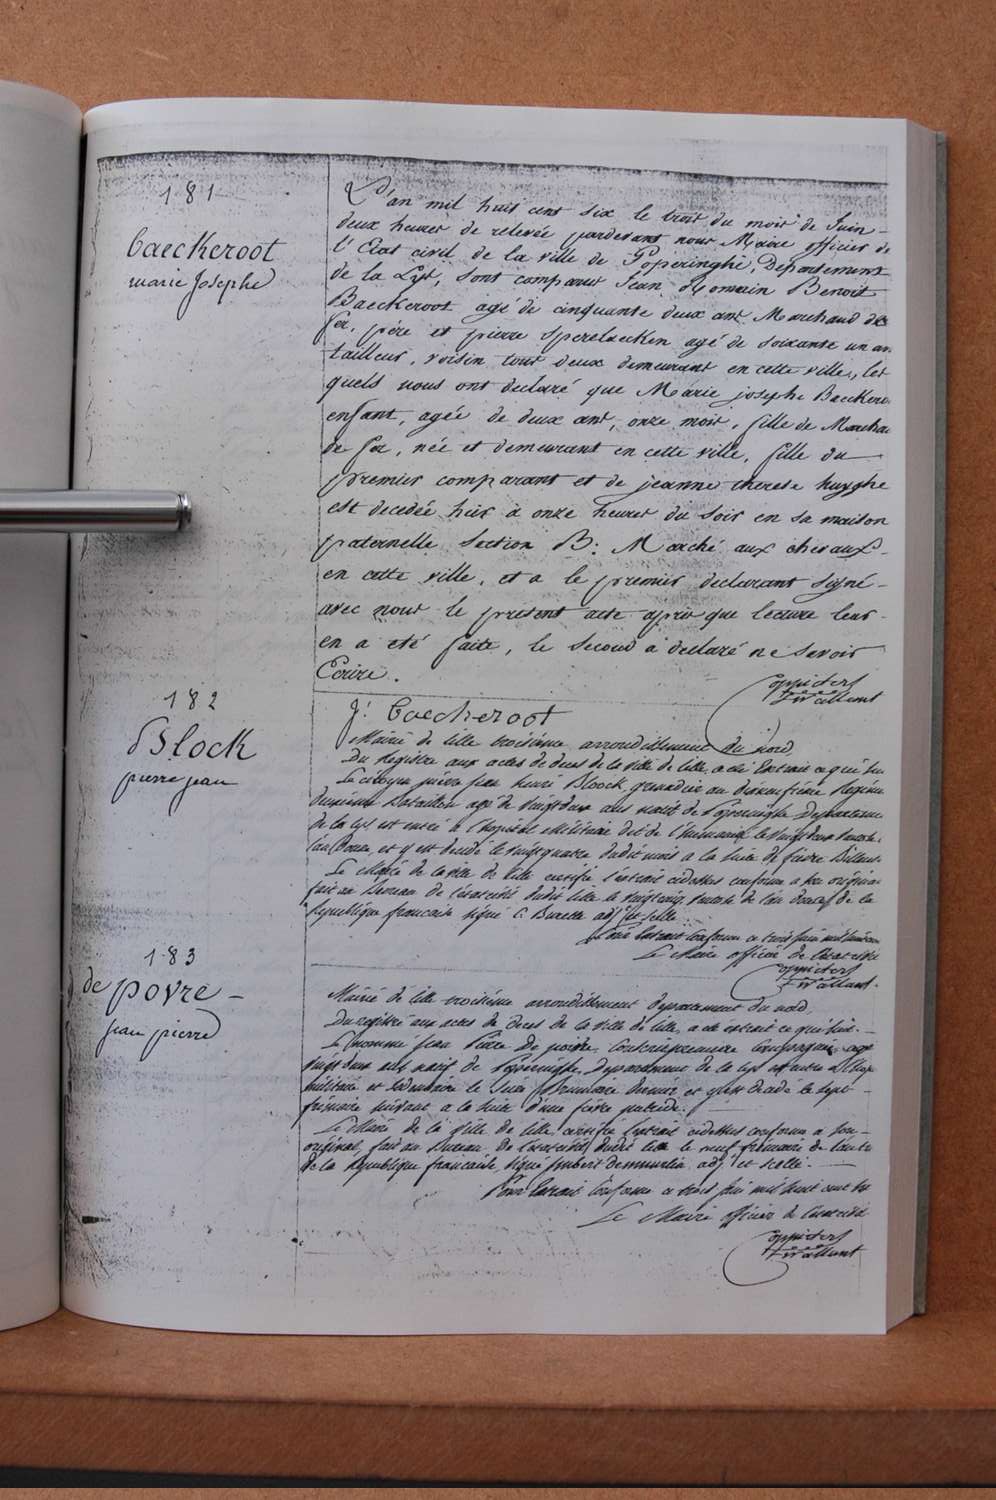 181
Baeckeroot
marie Josephe
L'an mil huit cent six le trois du mois de Juin
deux heures de relevée pardevant nous Maire officier de
l'Etat civil de la ville de Poperinghe, Departement
de la Lys, sont comparus Jean Romain Benoit
Baeckeroot agé de cinquante deux ans Marchand de
fer, père et pierre agé de soixante un an
tailleur, voisin tous deux demeurant en cette ville, les
quels nous ont declaré que Marie josephe Baeckero
enfant, agée de deux ans, onze mois, fille de Marcha
de fer, née et demeurant en cette ville, fille du
premier comparant et de jeanne therese huyghe
est decedée hier à onze heures du soir en sa maison
paternelle section B: Marché aux chevaux
en cette ville, et a le premier declarant signé
avec nous le présent acte après que lecture leur
en a eté faite, le second a declaré ne savoir
Ecrire.
J: Baeckeroot
182
Block
pierre jean
Mairie de lille troisième arrondissement du nord,
Du Registre aux actes de deces de la ville de lille, a été Extrait ce qui suit
Le citoyen pierre jean henri Block, grenadier au Regim
deuxieme Bataillon age de vingt deux ans natif de Poperinghe Departem
de la lys est entré a l'hopital militaire dit de le vingt deux
an douze, et y est decedé le vingt quatre dudit mois a la suite de fievre
Le Maire de la ville de lille certifie l'extrait cidessus conforme a son origina
fait au Bureau de l'etat civil dudit lille le de l'an douze de la
Republique francaise signé adj
Pour Extrait Conforme ce trois juin mil huit cent
Le Maire officier de l'Etat civil
183
de povre
jean pierre
Mairie de lille troisième arrondissement departement du nord,
Du registre aux actes de Deces de la ville de lille, a été extrait ce qui suit.
Le nommé jean Pierre De povre, agé
vingt deux ans natif de Poperinghe, Departement de la lys est entré a l'hop
militaire et le Brumaire dernier et y est decedé le sept
frimaire suivant a la suite d'une fievre putride.
Le Maire de la Ville de lille, certifie l'extrait cidessus conforme a son
original, fait au Bureau de l'etat civil dudit lille le neuf frimaire de l'an
de la Republique francaise, signé adj et scellé.
Pour Extrait Conforme ce trois juin mil huit cent six
Le Maire officier de l'etat civil